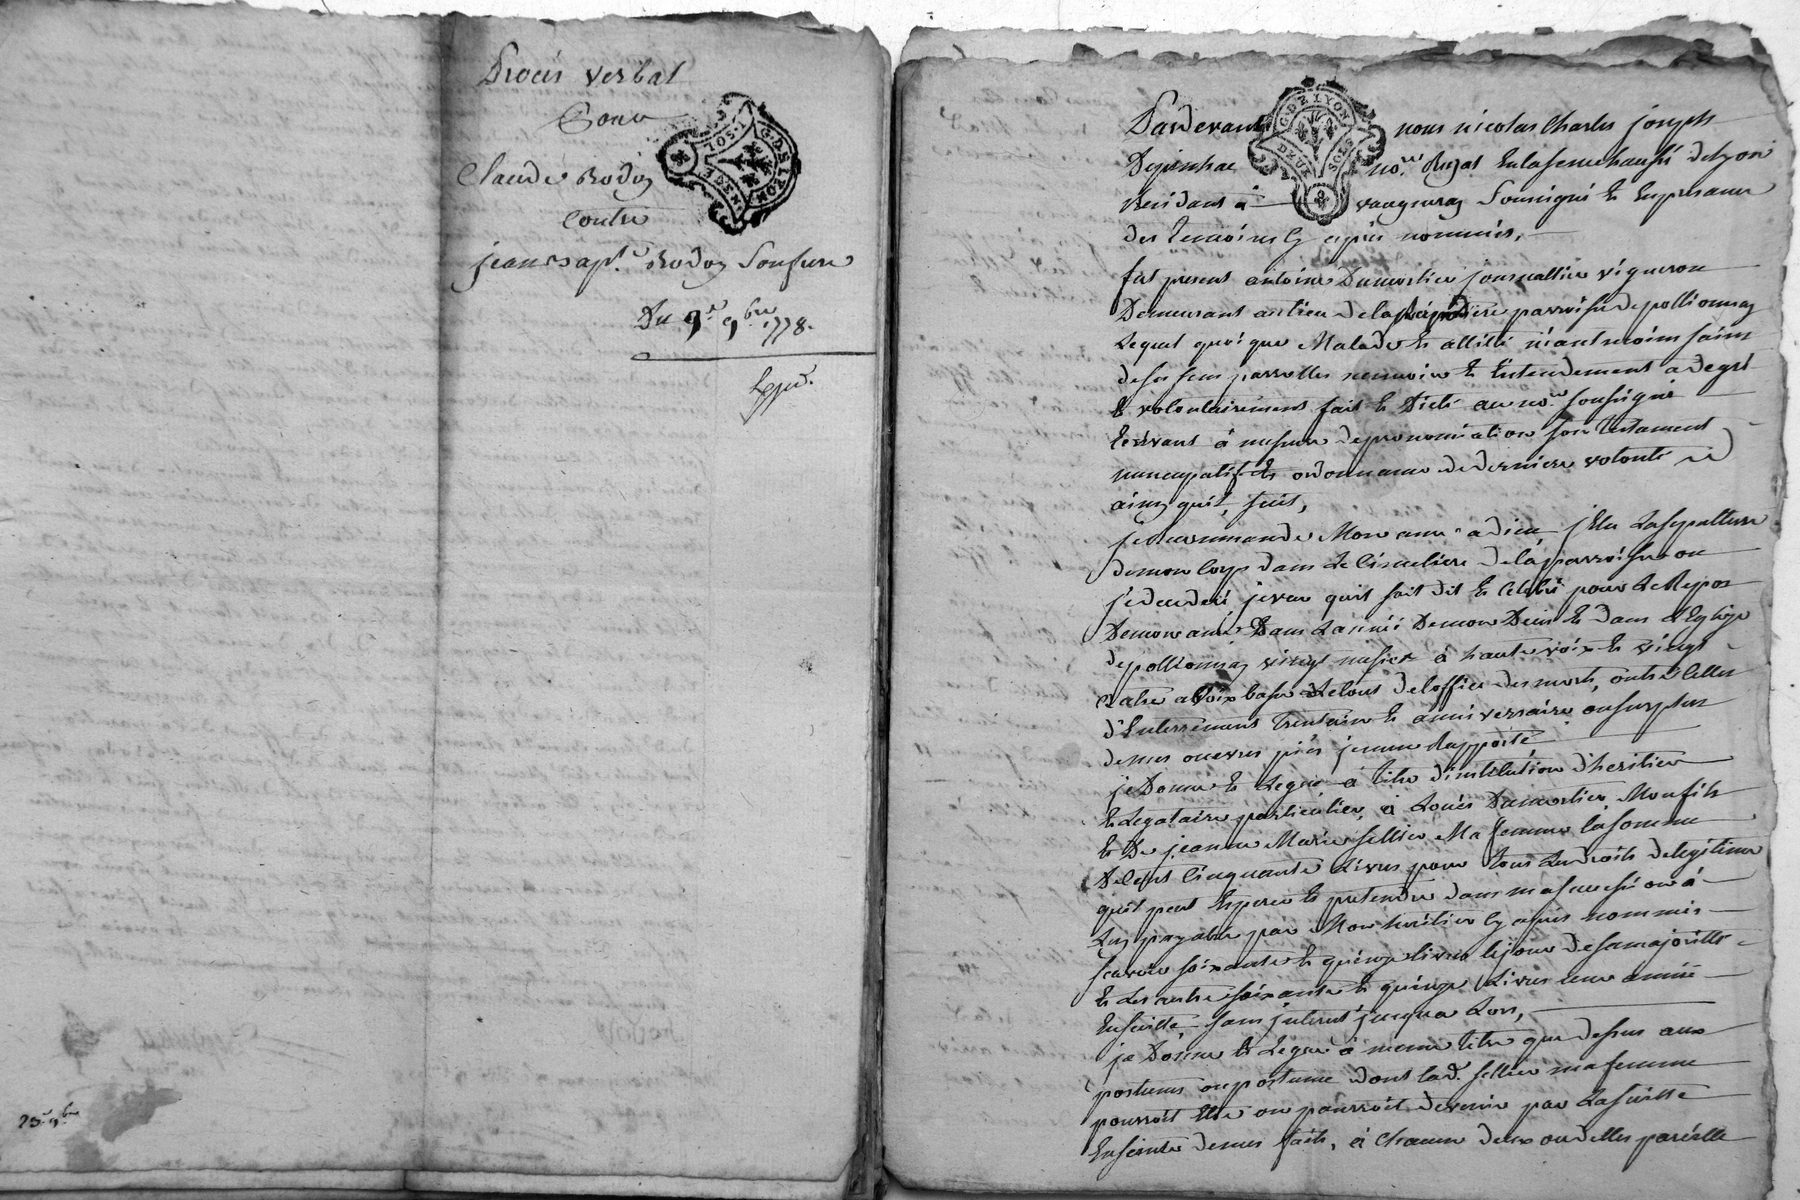 Procès verbal
Pour
Claude Rodoz
Contre
jean Bapt.e Rodoz Son frere
Du 9.e 9.bre 1778.
G.D.E LYON
25 9.bre
Pardevant nous nicolas Charles joseph
no.re Royal En la senechaussé de Lyon
Residant à vaugneray Soussigné Et En presence
des Temoins Cy après nommés,
fut present antoine Dumortier journallier vigneron
Demeurant au lieu de la parroisse de pollionnay
Lequel quoi que Malade Et allitté néantmoins sains
de ses sens parrolles memoire Et Entendement a de gré
Et volontairement fait Et Dicté au no.re soussigné
Ecrivant à mesure de prononciation son testament
nuncupatif Et ordonnance de derniere volonté
ainsy quil suit,
je recommande Mon ame a dieu, jElis La sepulture
de mon Corps dans Le Cimetiere de la parroisse ou
je decederé, je veux quil soit dit Et Célébré pour Le Repos
De mon ame Dans L'année De mon Decès Et dans L'Eglise
de pollionnay vingt messes à haute voix Et vingt
quatre a voix basse Le tout de l'office des morts, outre Celles
d'Enterrement trentaine Et anniversaire, au surplus
de mes oeuvres pies je m'en Rapporte
je Donne Et Legue à titre d'institution d'heritier
Et Legataire particulier, à Louis Dumortier, Mon fils
Et De jeanne Marie Sellier Ma femme la somme
De Cent Cinquante Livres pour tous Les droits de legitime
quil peut Esperer Et pretendre dans ma succession à
Luy payable par Mon heritier Cy après nommés
scavoir soixante Et quinze livres le jour de sa majorité
Et Les autre soixante Et quinze Livres une année
Ensuitte, sans interet jusqua Lors,
je Donne Et Legue à meme titre que dessus aux
postumes ou postume dont lad. Sellier ma femme
pourroit Etre ou pourroit devenir par La suitte
Enceinte de mes faits, à Chacun deux ou delles pareille